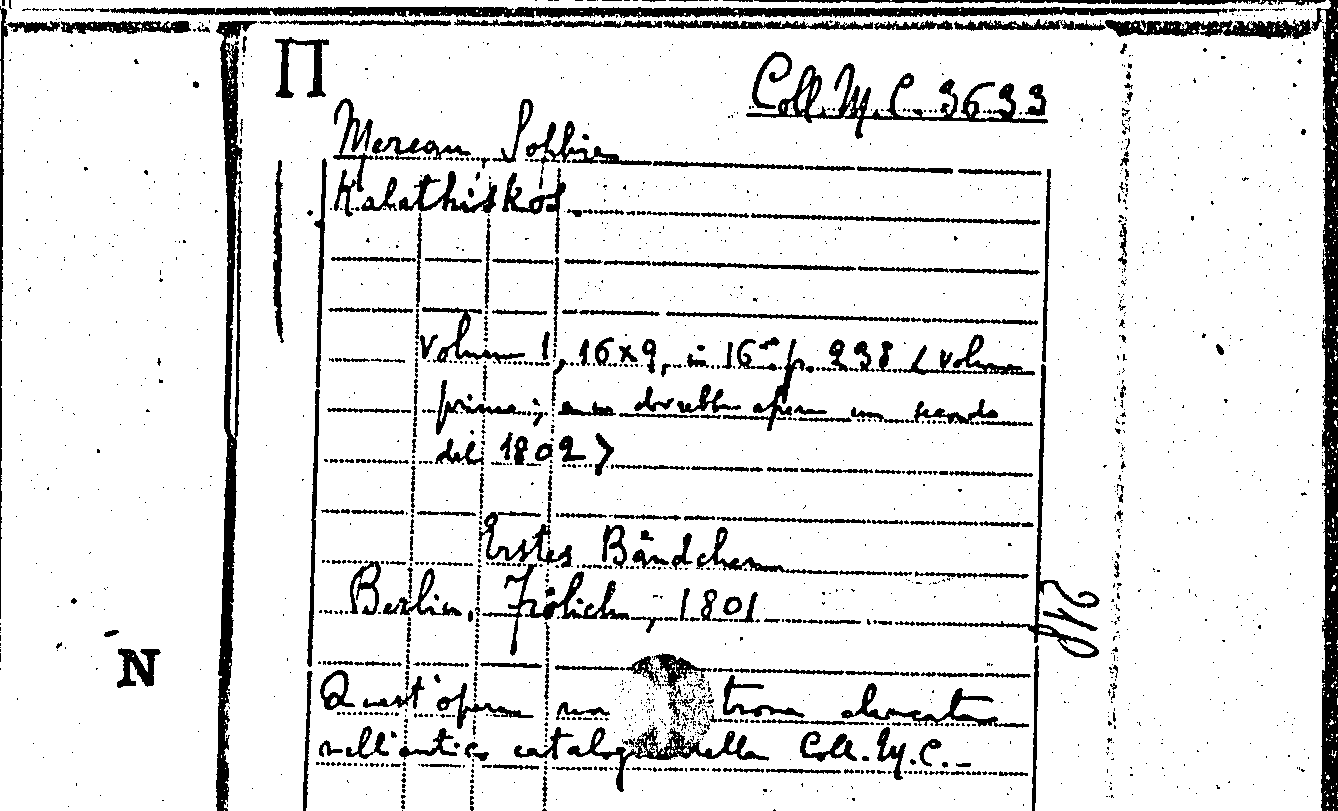 Π
Coll. M. C. 3633
Mereau, Sophie
Kalathiskos.
volume 1, 16x9, in 16mo p. 238 (volume
primo; ne dovrebbe un secondo
del 1802)
Erstes Bändchen
Berlin, Frölich, 1801
218
N
Quest'opera non trova elencata
nell'antico catalogo della Coll. M. C.